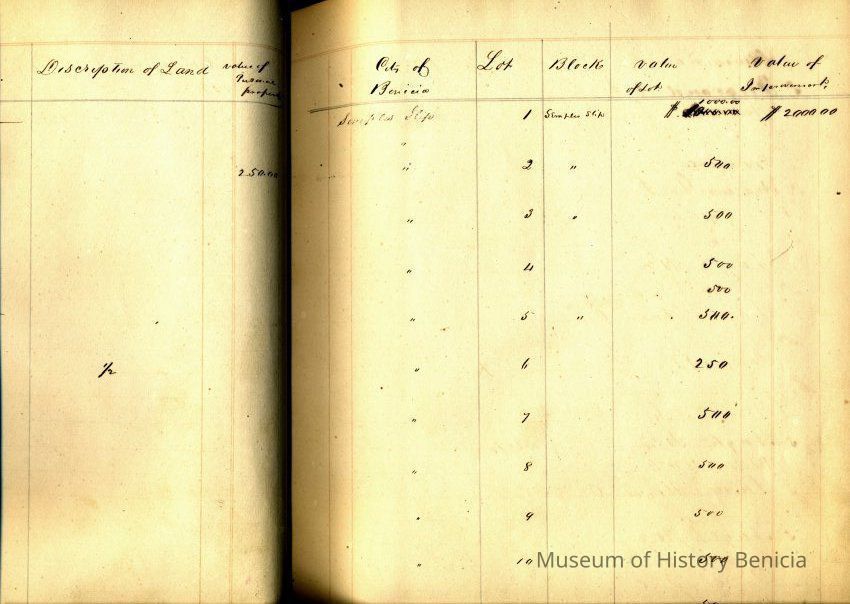 Description of Land value of
Personal
property
250.00
1/2
City of
Benicia Lot Block value
of Lot value of
Improvements
Semples Slip 1 Semples Slip $ 1000.00 $ 2000 00
"
" 2 " 500
" 3 " 500
" 4 500
500
" 5 " 500
" 6 250
" 7 500
" 8 500
" 9 500
" 10 500
Museum of History Benicia